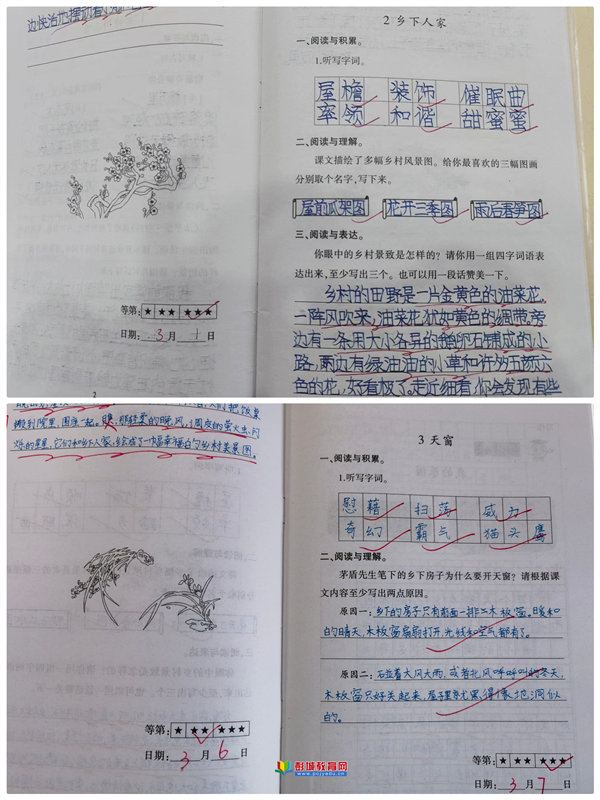 2 乡下人家
一、阅读与积累。
1.听写字词。
屋檐 装饰 催眠曲
率领 和谐 甜蜜蜜
二、阅读与理解。
课文描绘了多幅乡村风景图。给你最喜欢的三幅图画
分别取个名字,写下来。
屋前瓜架图 花开三季图 雨后春笋图
三、阅读与表达。
你眼中的乡村景致是怎样的?请你用一组四字词语表
达出来,至少写出三个。也可以用一段话赞美一下。
乡村的田野是一片金黄色的油菜花,
一阵风吹来,油菜花犹如黄色的绸带。旁
边有一条用大小各异的鹅卵石铺成的小
路,两边有绿油油的小草和许多五颜六
色的花,好看极了。走近细看,你会发现有些
等第:★ ★★ ★★★
日期:3月1日
2
搬到院里,围座一起。
烁的星星,它们和乡下人家,绘成了一幅幸福的乡村美景图。
等第:★ ★★ ★★★
日期:3月6日
3 天窗
一、阅读与积累。
1.听写字词。
慰藉 扫荡 威力
奇幻 霸气 猫头鹰
二、阅读与理解。
茅盾先生笔下的乡下房子为什么要开天窗?请根据课
文内容至少写出两点原因。
原因一:乡下的房子只有前面一排木板窗。暖和
的晴天,木板窗扇扇打开,光线和空气都有了。
原因二:碰着大风大雨,或者北风呼呼叫的冬天,
木板窗只好关起来,屋子里就黑得像地洞似
的。
等第:★★★ ★★★
日期:3月7日
彭城教育网
www.pcjyedu.cn